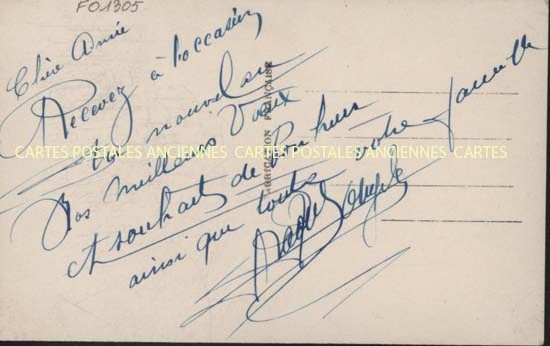 FO1305
Chère Année
Recevez à l'occasion
du nouvel an
Nos meilleurs Vœux
et souhaits de Bonheur
ainsi que toute votre famille
FABRICATION FRANÇAISE
CARTES POSTALES ANCIENNES CARTES POSTALES ANCIENNES CARTES